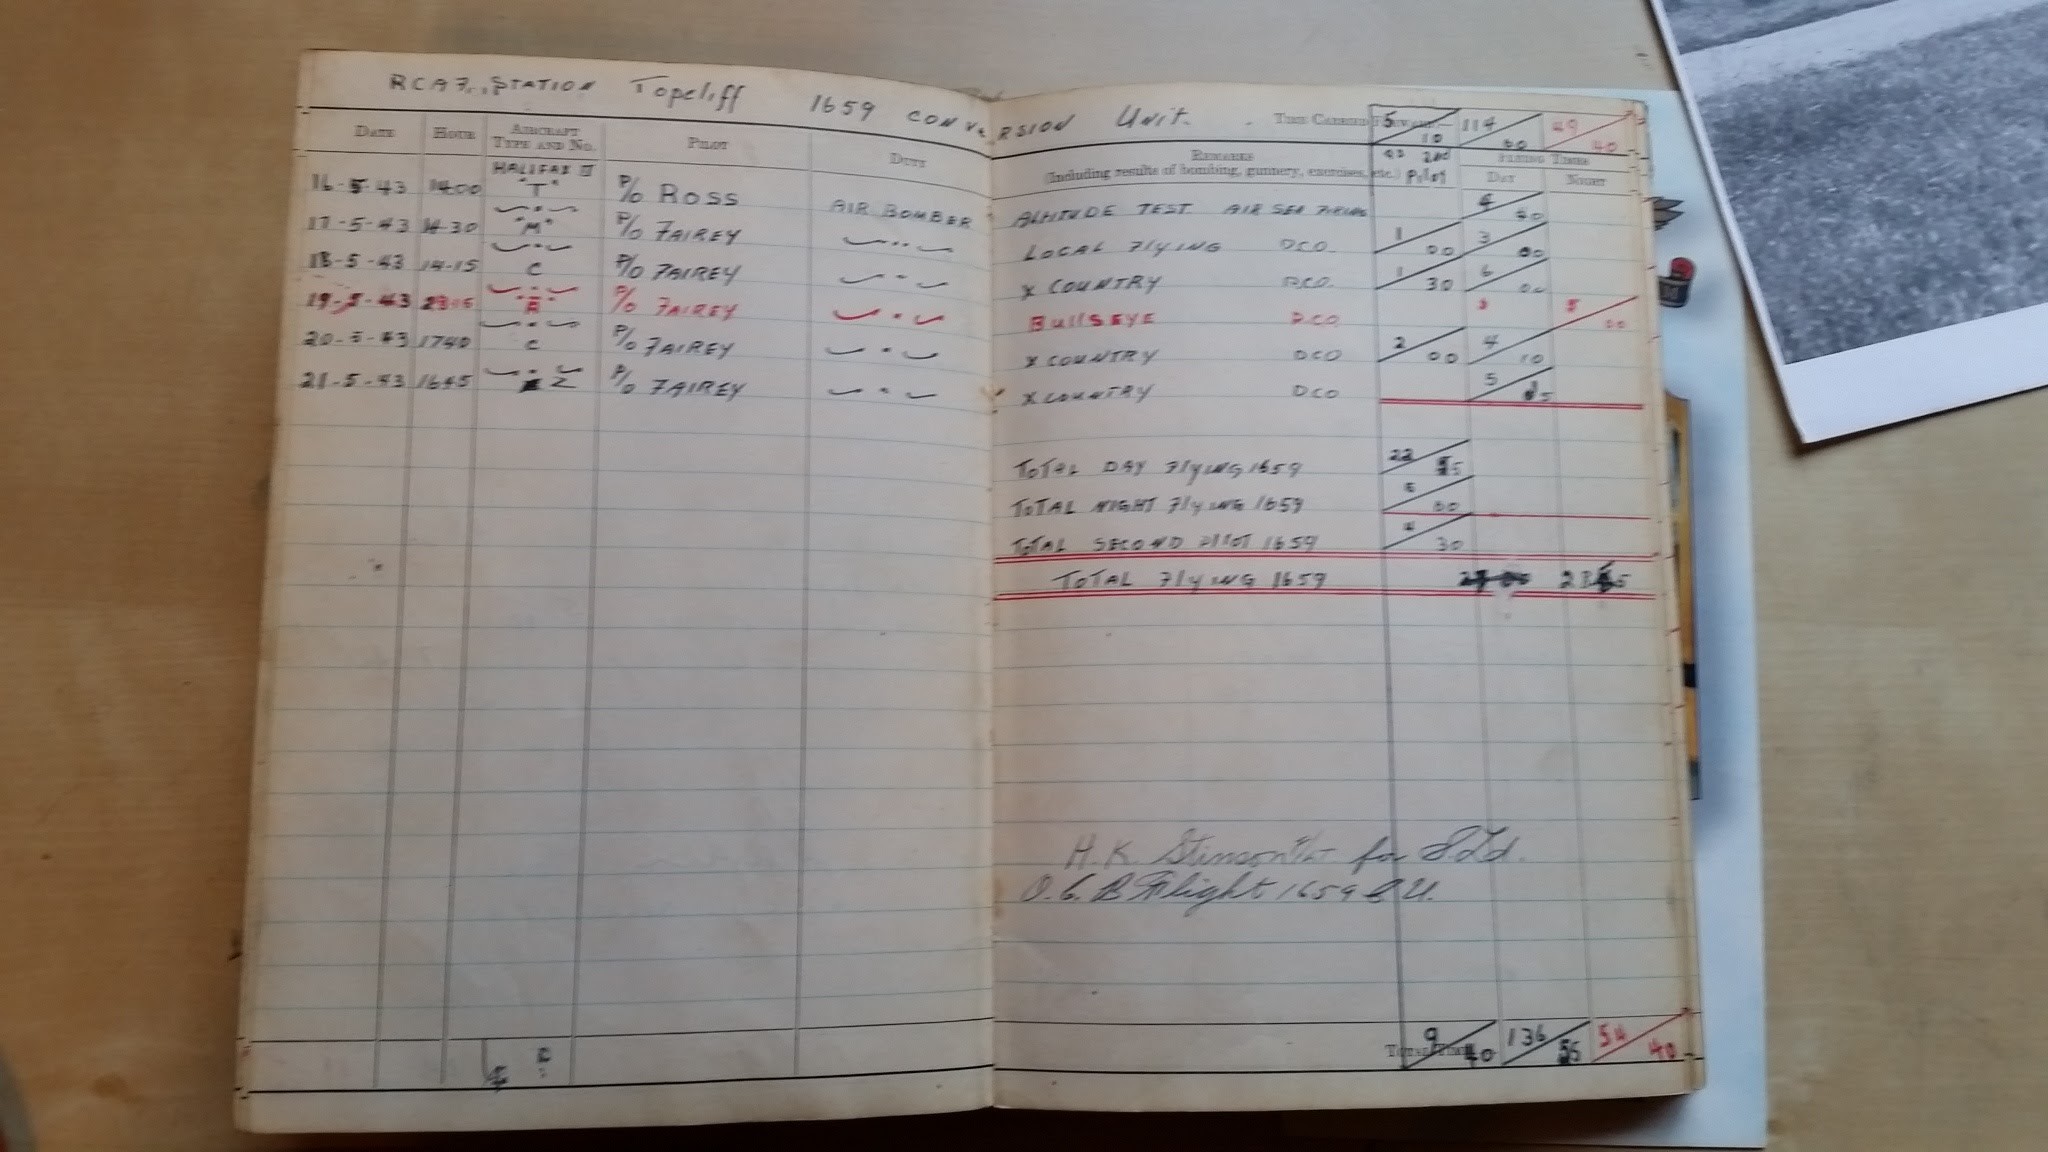 RCAF. STATION Topcliff 1659 CONVERSION Unit.
TIME CARRIED FORWARD:— 5/10 114/00 49/40
DATE HOUR AIRCRAFT TYPE AND NO. PILOT DUTY REMARKS (Including results of bombing, gunnery, exercises, etc.) as 2nd Pilot FLYING TIMES DAY NIGHT
HALIFAX II
16-5-43 1400 "T" P/O ROSS AIR BOMBER ALTITUDE TEST. AIR SEA FIRING 4/40
17-5-43 "M" P/O FAIREY LOCAL FlyING DCO. 1/00 3/00
18-5-43 14-15 C P/O FAIREY X COUNTRY DCO. 1/30 6/00
19-5-43 P/O FAIREY BullSEYE DCO. 5/00
20-5-43 1740 C P/O FAIREY X COUNTRY DCO 2/00 4/10
21-5-43 1645 Z P/O FAIREY X COUNTRY DCO 5
TOTAL DAY FlyING 1659 22
TOTAL NIGHT FlyING 1659 5/00
TOTAL SECOND PILOT 1659 4/30
TOTAL FlyING 1659
H. K. Stinson F/Lt for S/Ld.
O. C. B Flight 1659 C U.
TOTAL TIME 9/40 136/55 54/40